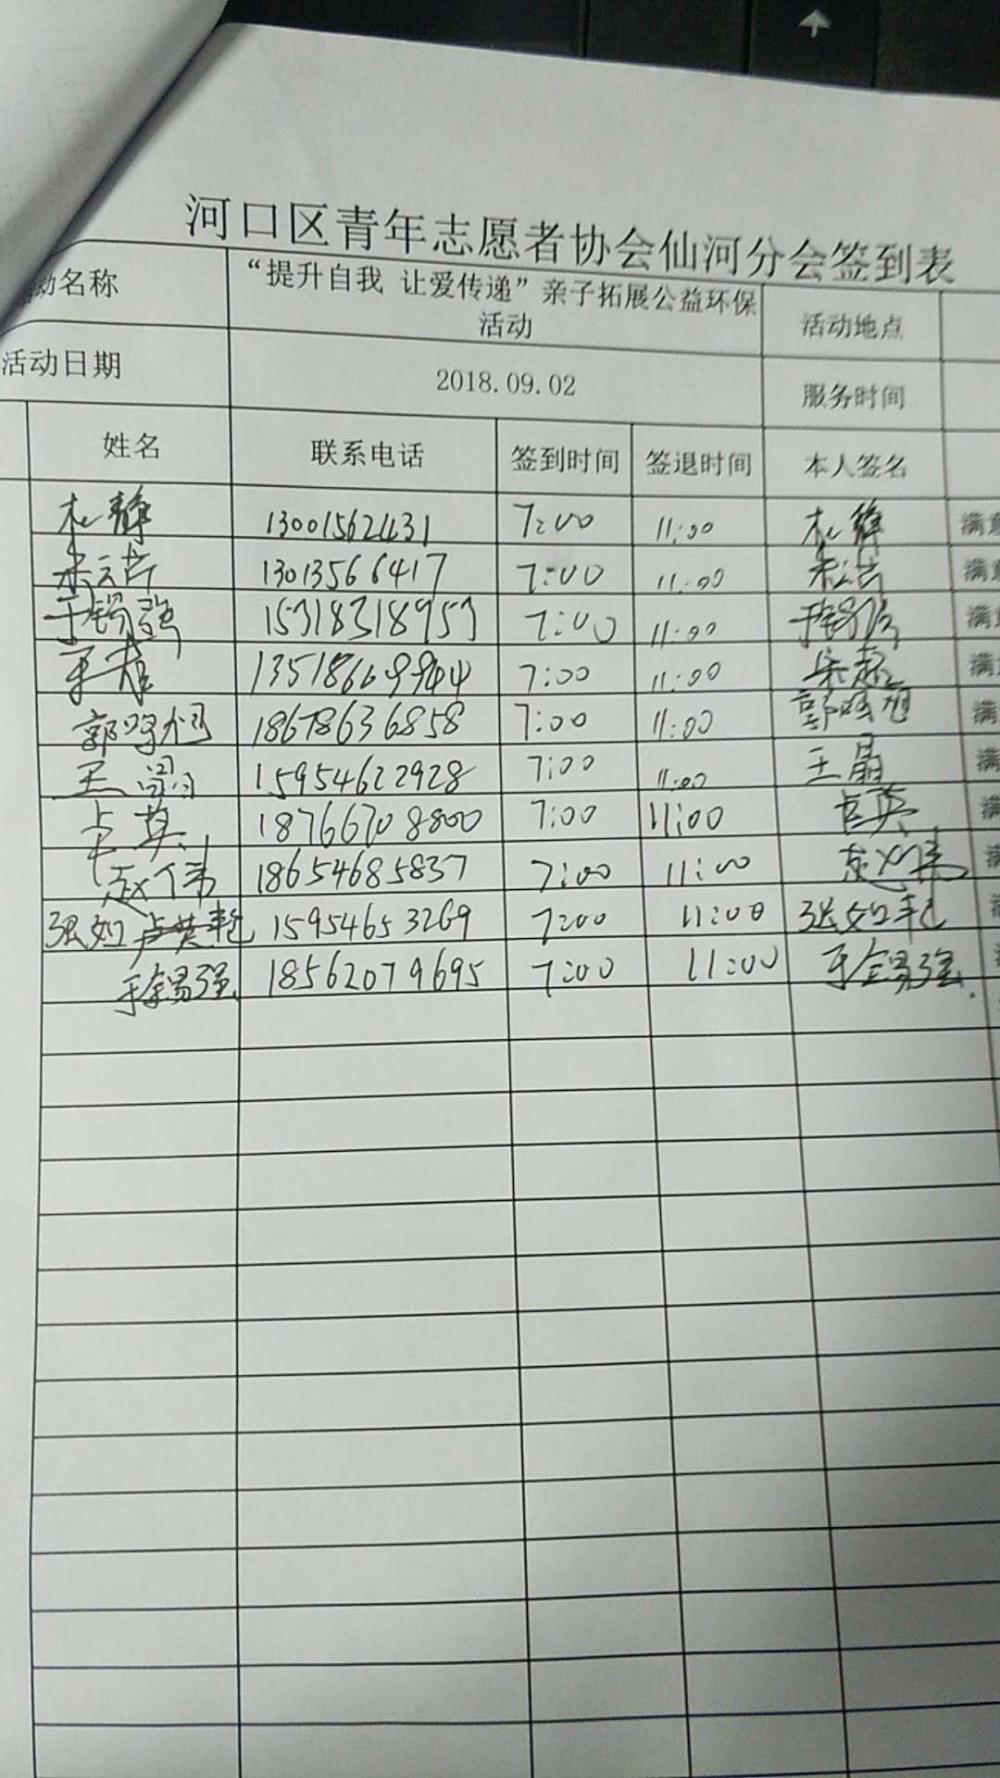 河口区青年志愿者协会仙河分会签到表
动名称 “提升自我 让爱传递”亲子拓展公益环保活动 活动地点
活动日期 2018.09.02 服务时间
姓名 联系电话 签到时间 签退时间 本人签名
杜静 13001562431 7:00 11:00 杜静 满
13013566417 7:00 11:00 满
于锡强 15318318953 7:00 11:00 于锡强 满
7:00 11:00 满
郭 18678636858 7:00 11:00 郭 满
王晶 15954622928 7:00 11:00 王晶 满
卢英 18766708800 7:00 11:00 卢英 满
赵伟 18654685837 7:00 11:00 赵伟 满
张如 15954653269 7:00 11:00 张如 满
于锡强 18562079695 7:00 11:00 于锡强